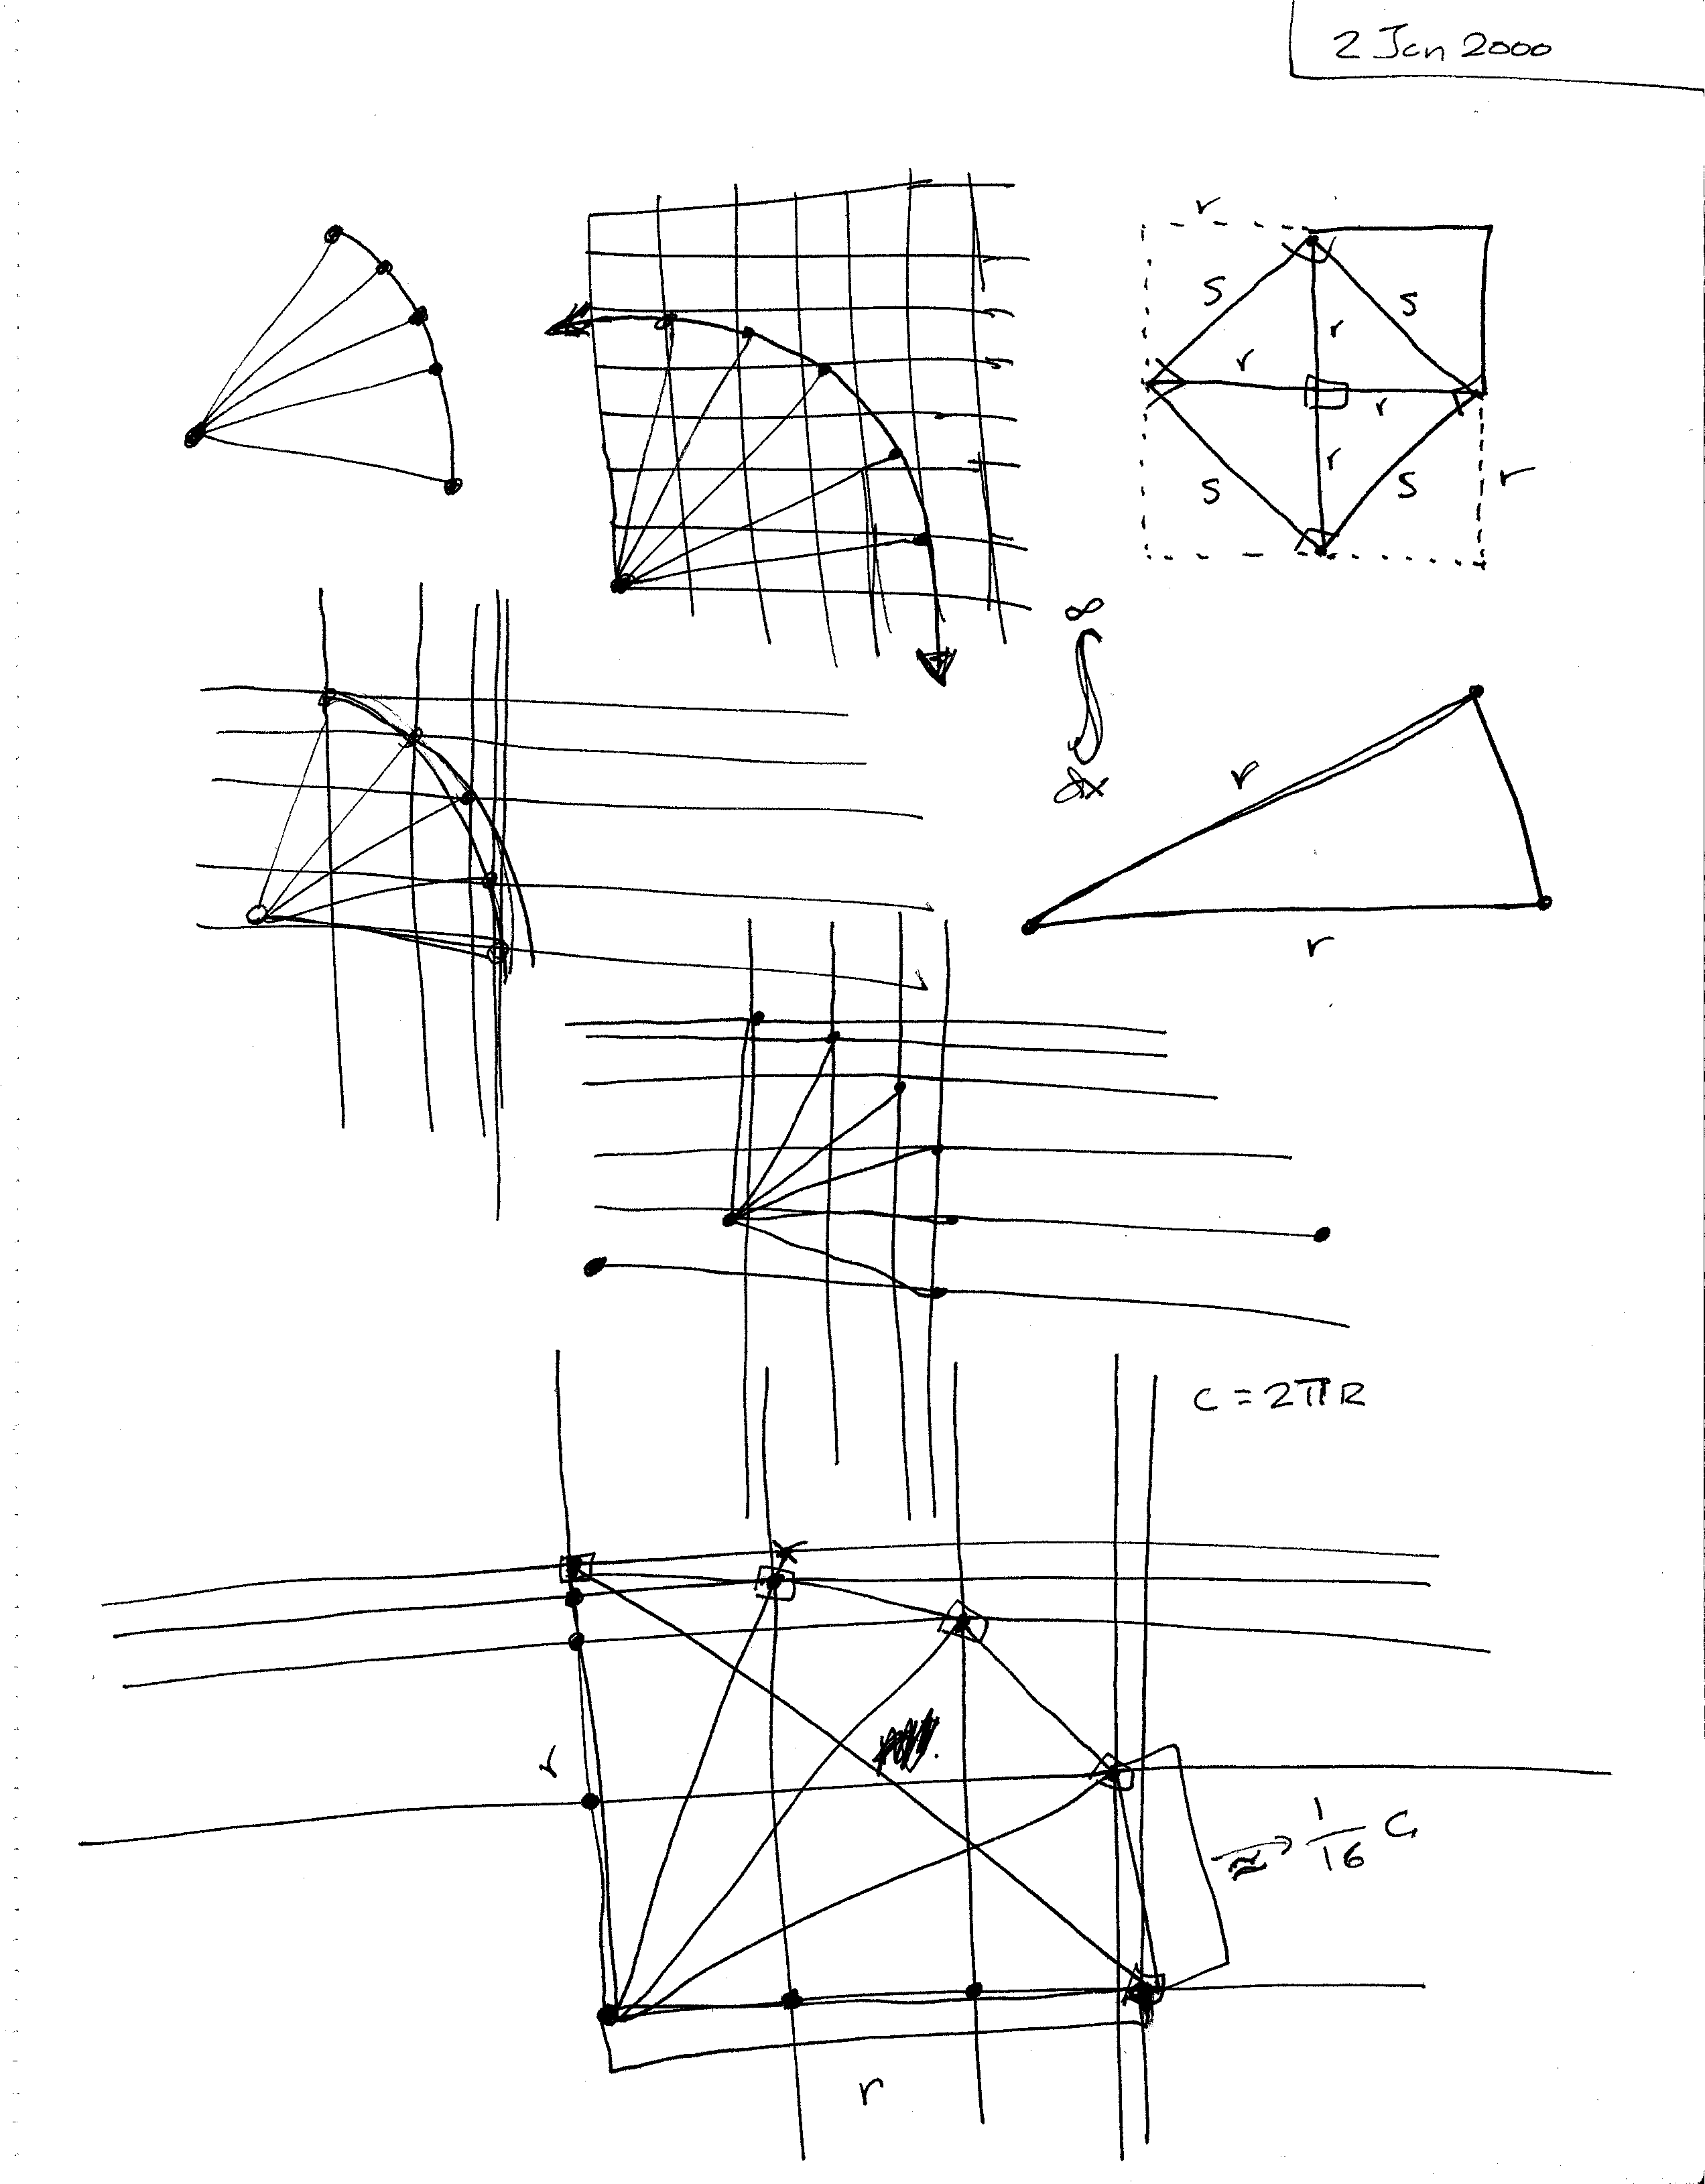 2 Jan 2000
r
s
s
r
r
r
r
s
s
r
∞
∫
dx
r
r
C = 2πR
r
≈ 1/16 C
r